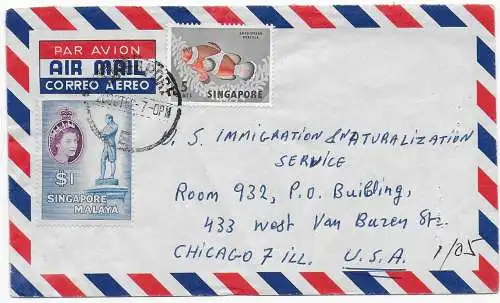 PAR AVION
AIR MAIL
CORREO AEREO
AMPHIPRION
PERCULA
5
CTS
SINGAPORE
$1
SINGAPORE
MALAYA
U. S. IMMIGRATION & NATURALIZATION
SERVICE
Room 932, P.O. Building,
433 West Van Buren Str.
CHICAGO 7 ILL. U.S.A. 1/05